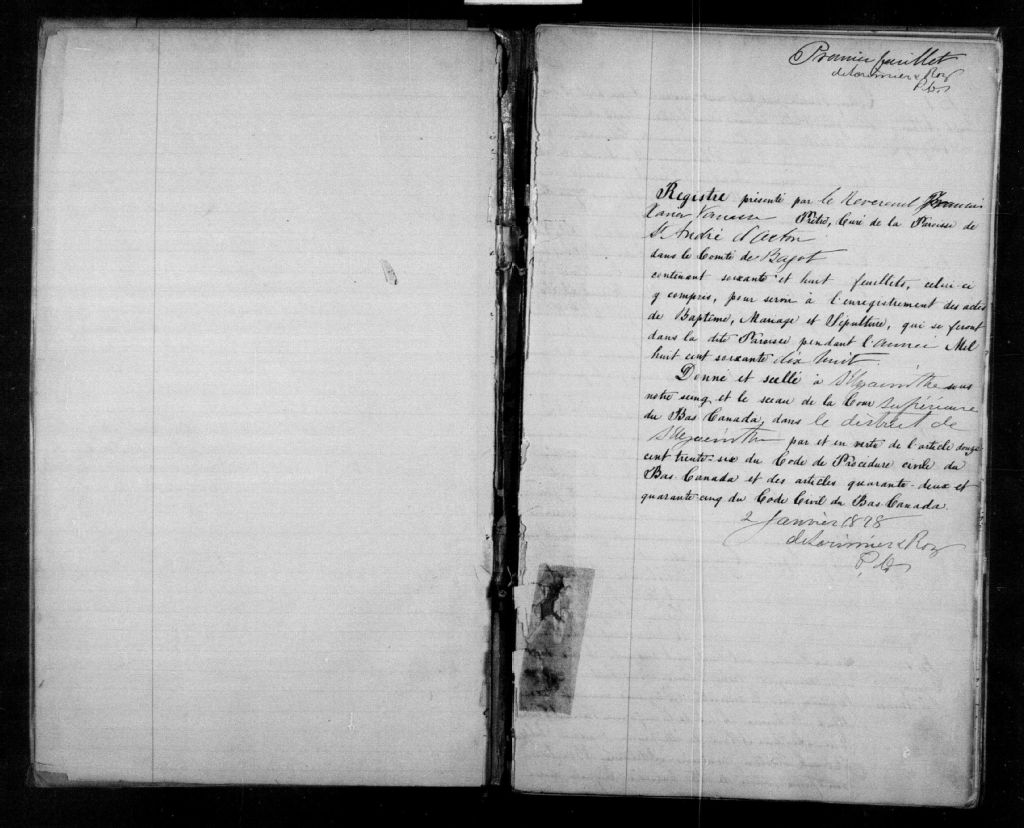 Premier feuillet
de Lorimier & Roy
P.C.S.
Registre présenté par le Révérend Francois
Xavier Vanasse Prêtre, Curé de la Paroisse de
St André d'Acton
dans le Comté de Bagot
contenant soixante et huit feuillets, celui-ci
y compris, pour servir à l'enregistrement des actes
de Baptême, Mariage et Sépulture, qui se feront
dans la dite Paroisse pendant l'année Mil
huit cent soixante dix huit.
Donné et scellé à St Hyacinthe sous
notre seing et le sceau de la Cour Supérieure
du Bas Canada, dans le district de
St Hyacinthe par et en vertu de l'article douze
cent trente-six du Code de Procédure civile du
Bas-Canada et des articles quarante-deux et
quarante-cinq du Code Civil du Bas-Canada.
2 Janvier 1878
de Lorimier & Roy
P.C.S.